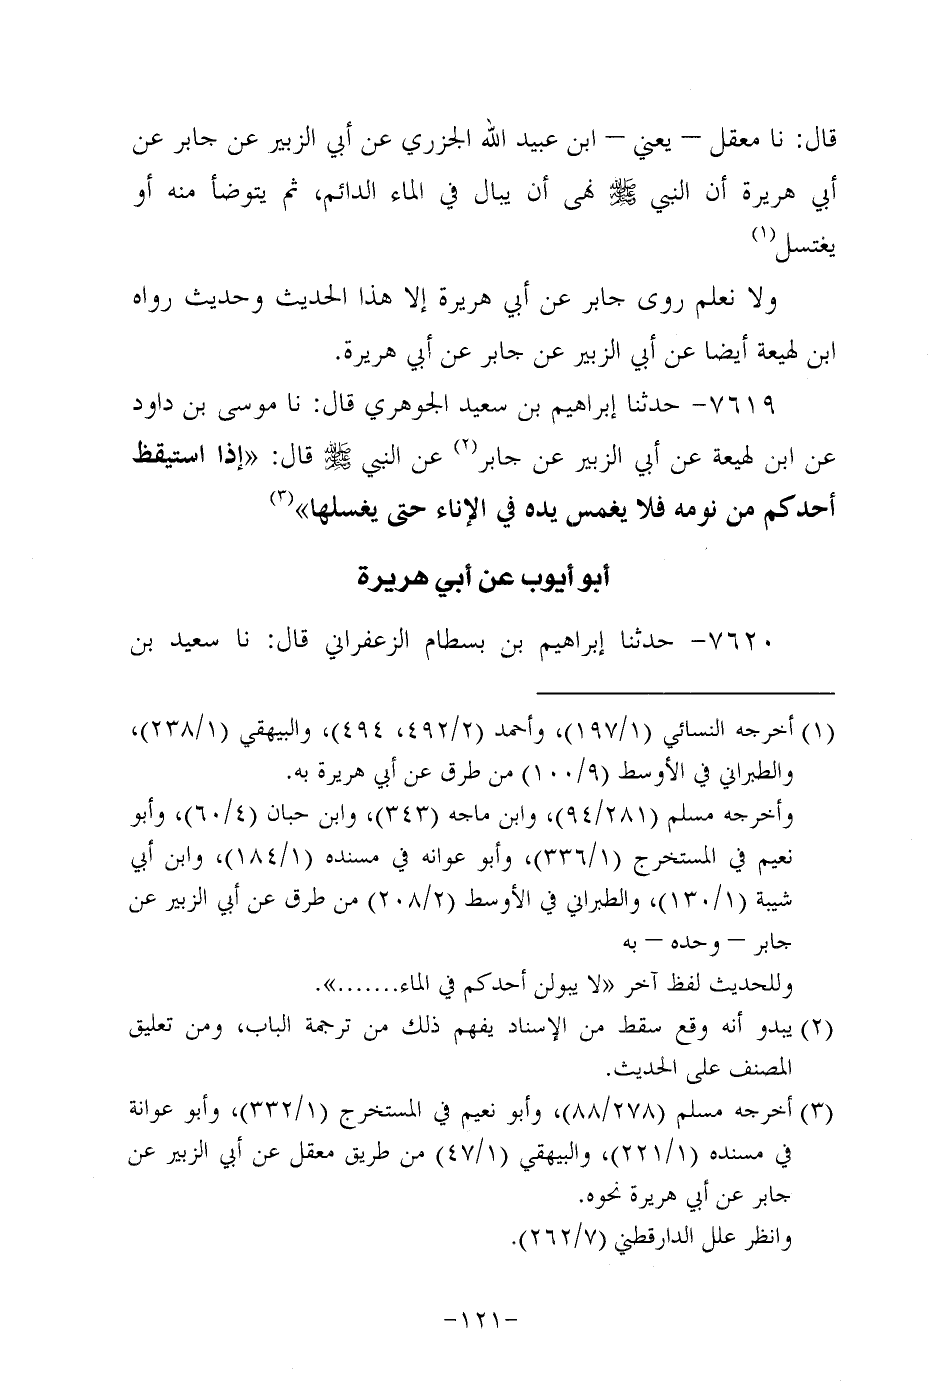 قال: نا معقل – يعني – ابن عبيد الله الجزري عن أبي الزبير عن جابر عن
أبي هريرة أن النبي ﷺ نهى أن يبال في الماء الدائم، ثم يتوضأ منه أو
يغتسل(١)
ولا نعلم روى جابر عن أبي هريرة إلا هذا الحديث وحديث رواه
ابن لهيعة أيضا عن أبي الزبير عن جابر عن أبي هريرة.
٧٦١٩- حدثنا إبراهيم بن سعيد الجوهري قال: نا موسى بن داود
عن ابن لهيعة عن أبي الزبير عن جابر(٢) عن النبي ﷺ قال: «إذا استيقظ
أحدكم من نومه فلا يغمس يده في الإناء حتى يغسلها»(٣)
أبو أيوب عن أبي هريرة
٧٦٢٠- حدثنا إبراهيم بن بسطام الزعفراني قال: نا سعيد بن
(١) أخرجه النسائي (١٩٧/١)، وأحمد (٤٩٢/٢، ٤٩٤)، والبيهقي (٢٣٨/١)،
والطبراني في الأوسط (١٠٠/٩) من طرق عن أبي هريرة به.
وأخرجه مسلم (٩٤/٢٨١)، وابن ماجه (٣٤٣)، وابن حبان (٦٠/٤)، وأبو
نعيم في المستخرج (٣٣٦/١)، وأبو عوانه في مسنده (١٨٤/١)، وابن أبي
شيبة (١٣٠/١)، والطبراني في الأوسط (٢٠٨/٢) من طرق عن أبي الزبير عن
جابر – وحده – به
وللحديث لفظ آخر «لا يبولن أحدكم في الماء.......».
(٢) يبدو أنه وقع سقط من الإسناد يفهم ذلك من ترجمة الباب، ومن تعليق
المصنف على الحديث.
(٣) أخرجه مسلم (٨٨/٢٧٨)، وأبو نعيم في المستخرج (٣٣٢/١)، وأبو عوانة
في مسنده (٢٢١/١)، والبيهقي (٤٧/١) من طريق معقل عن أبي الزبير عن
جابر عن أبي هريرة نحوه.
وانظر علل الدارقطني (٢٦٢/٧).
-١٢١-